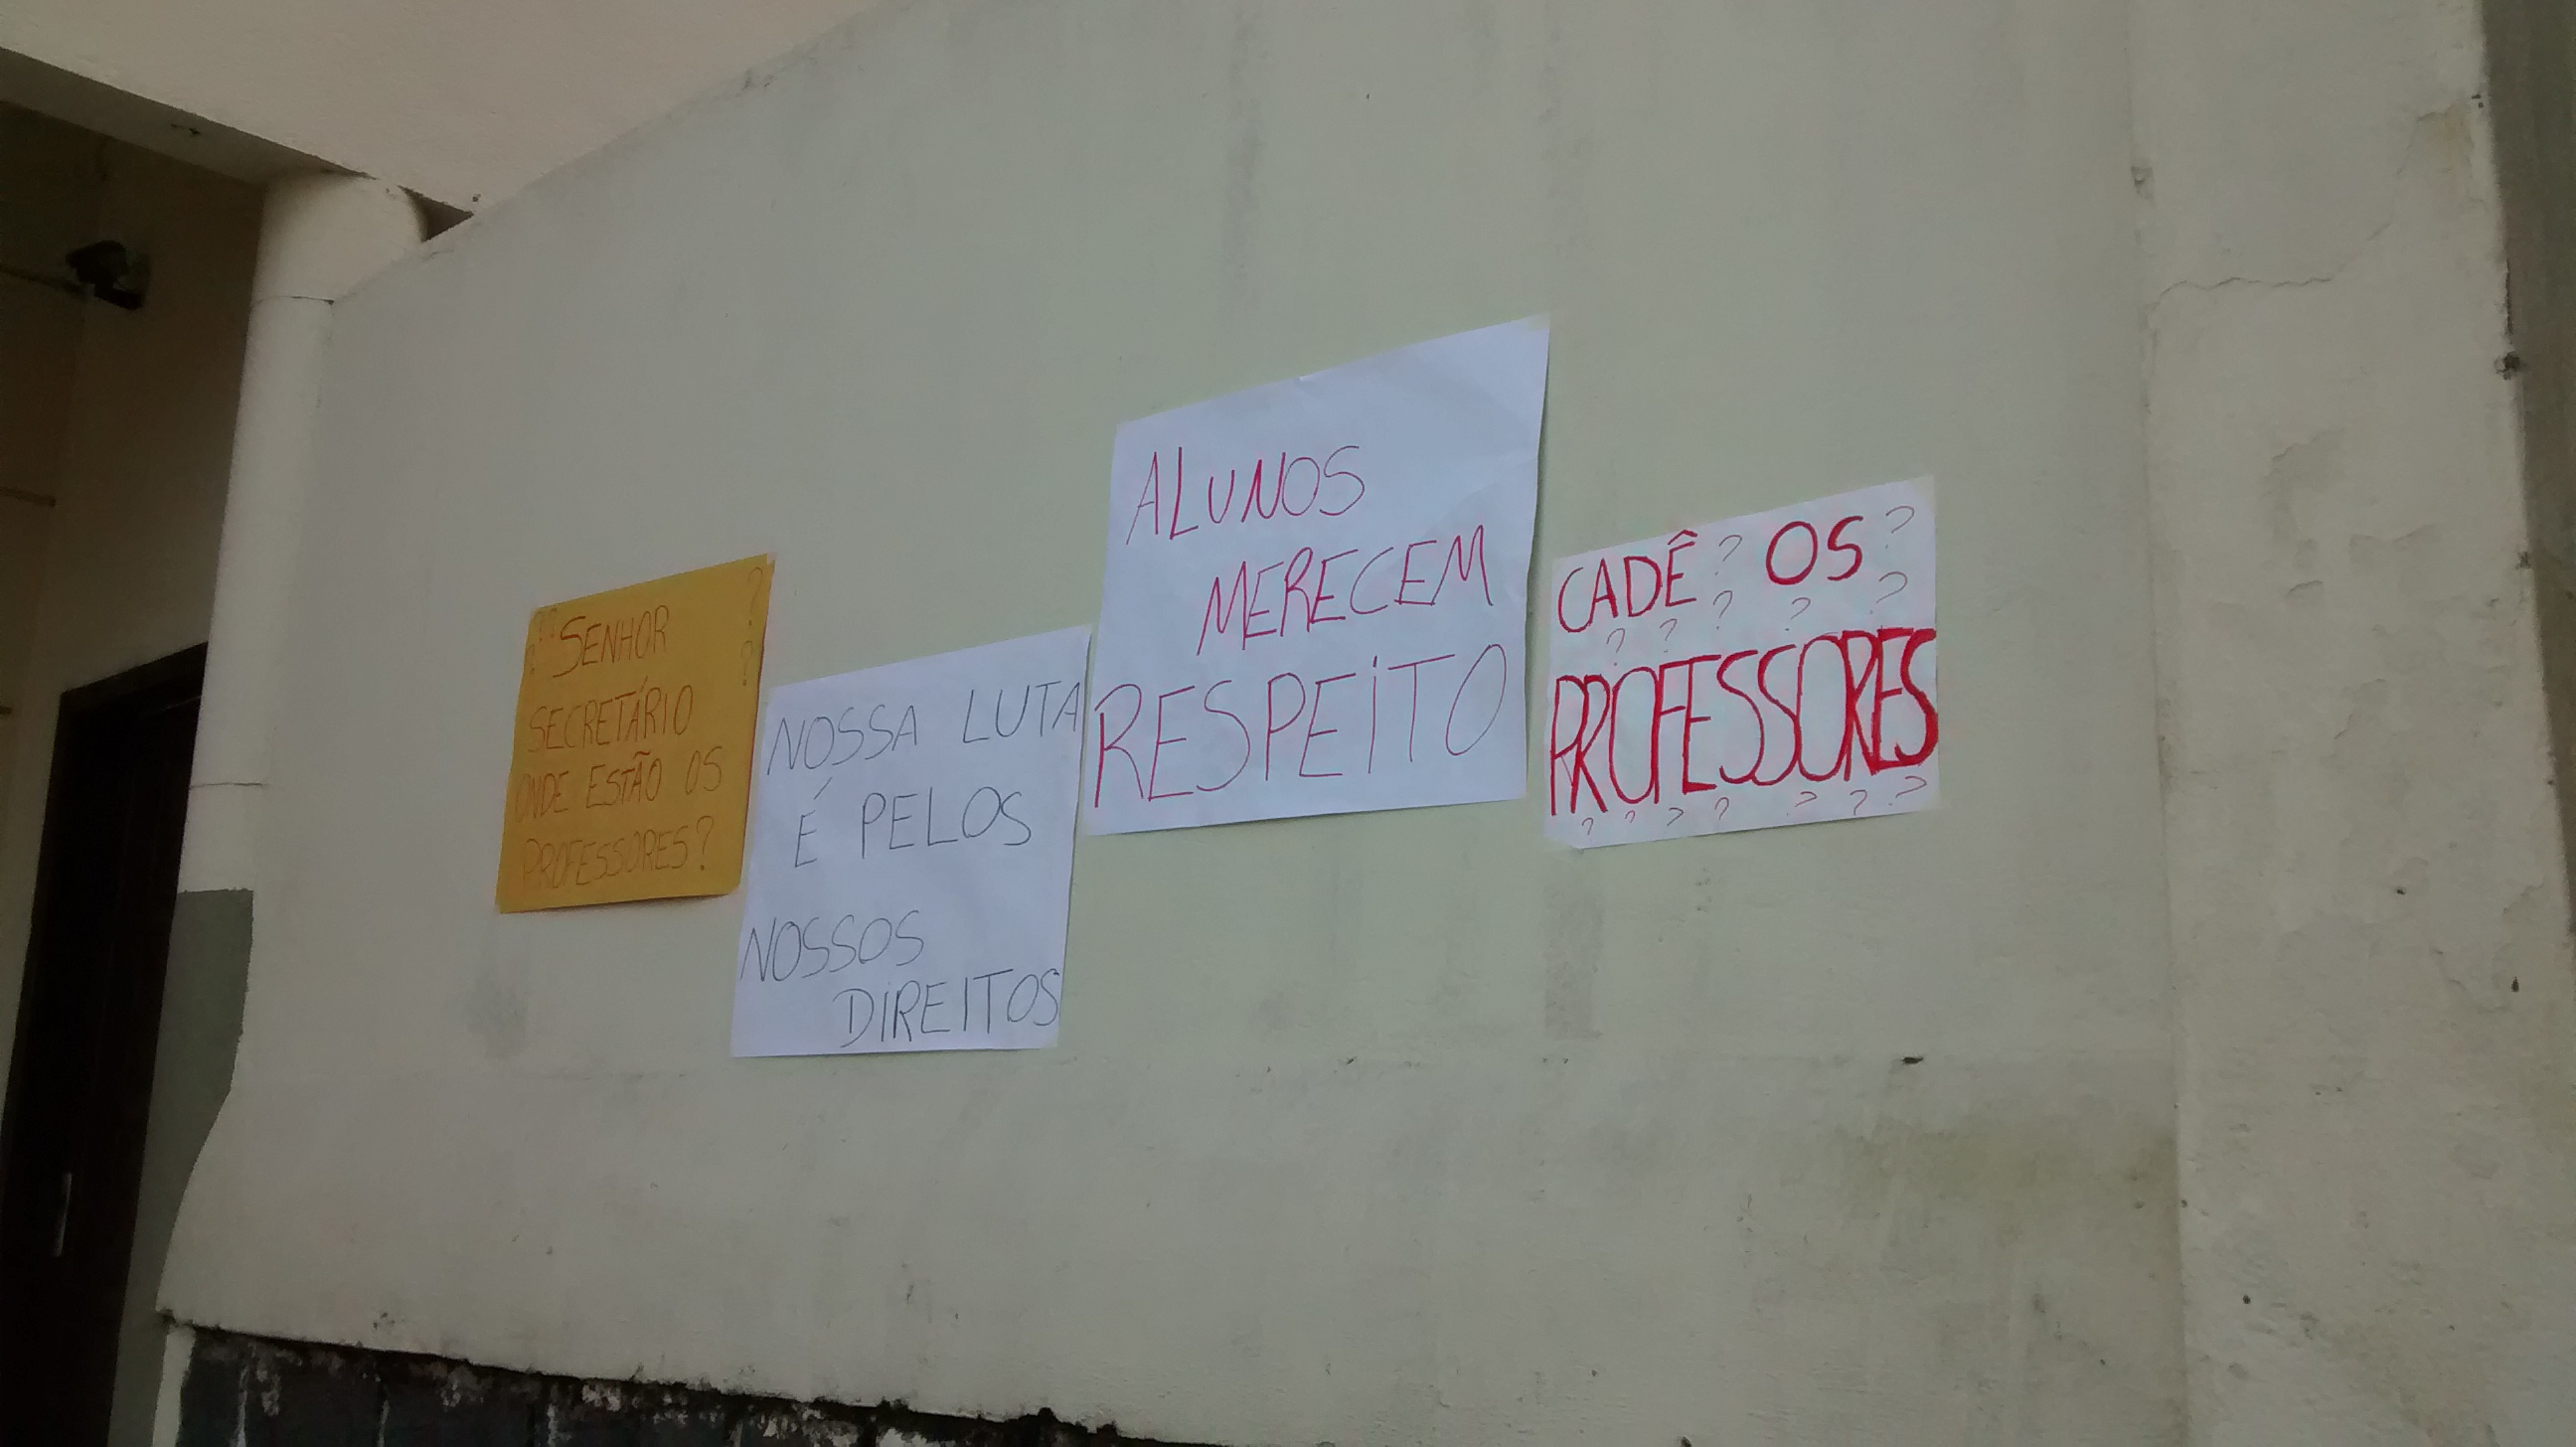 ?? SENHOR ?
? SECRETÁRIO ?
ONDE ESTÃO OS ?
PROFESSORES?
NOSSA LUTA
É PELOS
NOSSOS
DIREITOS
ALUNOS
MERECEM
RESPEITO
CADÊ ? OS ?
? ? ? ? ?
PROFESSORES
? ? ? ? ? ? ?